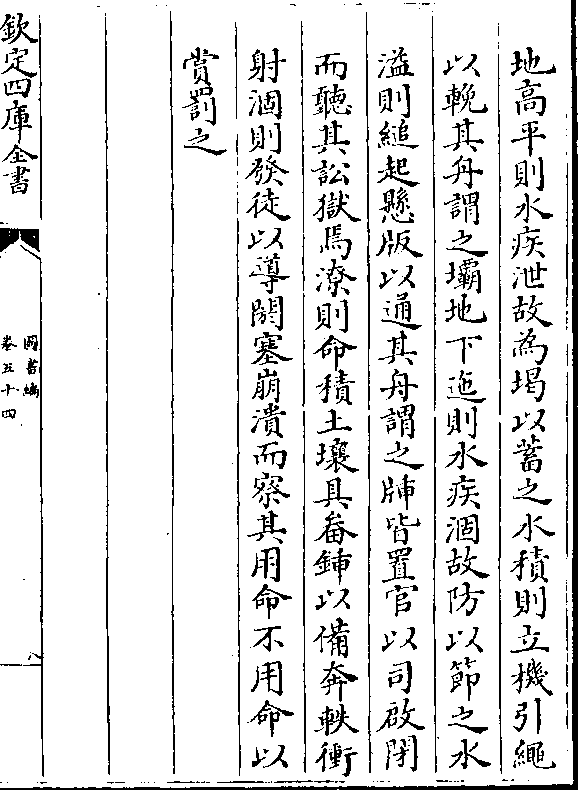 地高平則水疾泄故為堨以蓄之水積則立機引繩
以輓其舟謂之壩地下迤則水疾涸故防以節之水
溢則縋起懸版以通其舟謂之牐皆置官以司啟閉
而聽其訟獄焉潦則命積土壤具畚鍤以備奔軼衝
射涸則發徒以導閼塞崩潰而察其用命不用命以
賞罰之
欽定四庫全書
圖書編
卷五十四
八